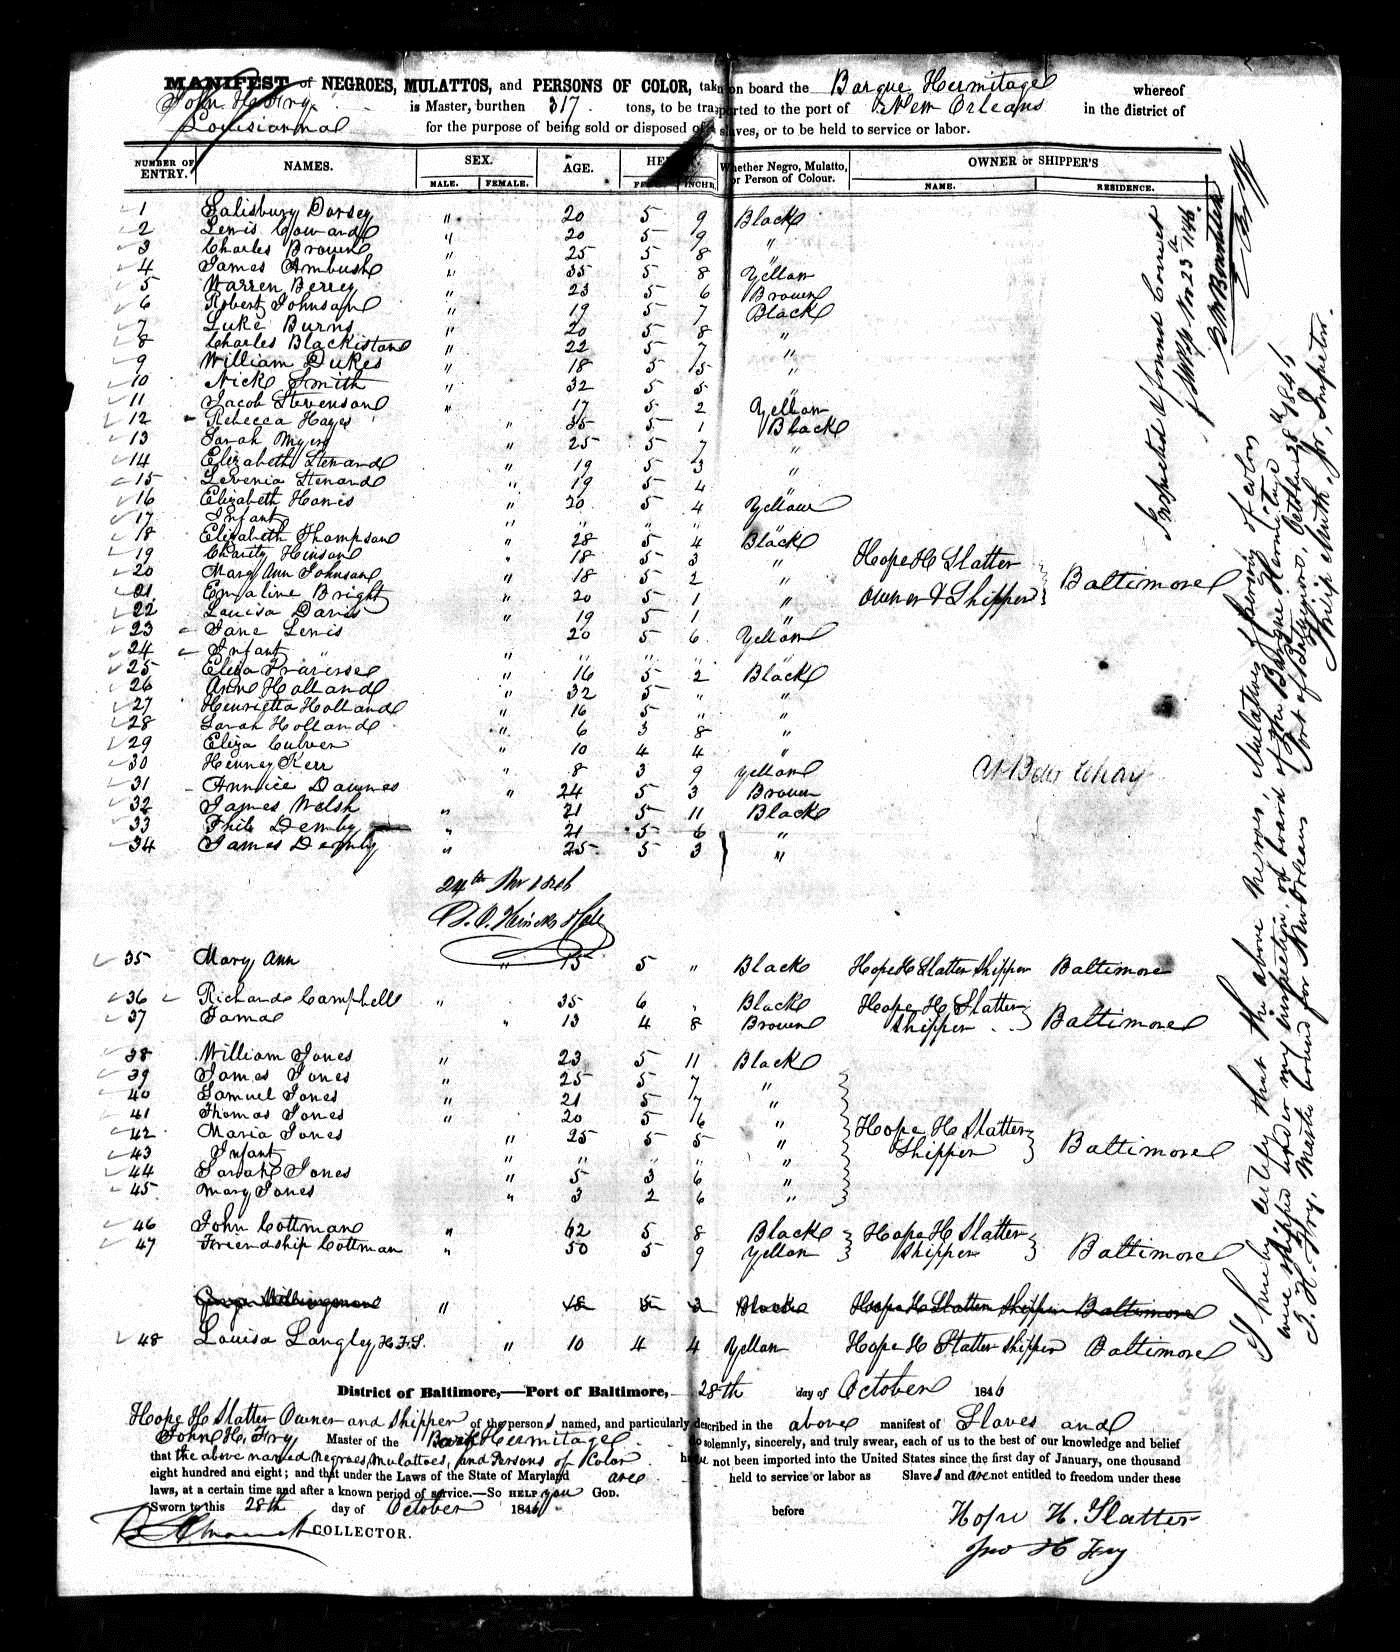 MANIFEST of NEGROES, MULATTOS, and PERSONS OF COLOR, taken on board the Barque Hermitage whereof
John H. Fry is Master, burthen 317 tons, to be transported to the port of New Orleans in the district of
Louisianna for the purpose of being sold or disposed of as slaves, or to be held to service or labor.
NUMBER OF ENTRY. NAMES. SEX. AGE. HEIGHT. Whether Negro, Mulatto, or Person of Colour. OWNER or SHIPPER'S
MALE. FEMALE. FEET. INCHES. NAME. RESIDENCE.
1 Salisbury Dorsey " 20 5 9 Black
2 Lewis Cowand " 20 5 9 "
3 Charles Brown " 25 5 8 "
4 James Ambush " 35 5 8 Yellow
5 Warren Berry " 23 5 6 Brown
6 Robert Johnson " 19 5 7 Black
7 Luke Burns " 20 5 8 "
8 Charles Blackiston " 22 5 7 "
9 William Dukes " 18 5 5 "
10 Nick Smith " 32 5 5 "
11 Jacob Stevenson " 17 5 2 Yellow
12 Rebecca Hayes " 35 5 1 Black
13 Sarah Myers " 25 5 7 "
14 Elizabeth Stenard " 19 5 3 "
15 Levenia Stenard " 19 5 4 "
16 Elizabeth Harris " 20 5 4 Yellow
17 Infant " " " " "
18 Elizabeth Thompson " 28 5 4 Black
19 Charity Hinson " 18 5 3 " Hope H Slatter
20 Mary Ann Johnson " 18 5 2 " Baltimore
21 Emaline Bright " 20 5 1 " owner & Shipper
22 Louisa Davis " 19 5 1 "
23 Jane Lewis " 20 5 6 Yellow
24 Infant " " " " "
25 Eliza Traverse " 16 5 2 Black
26 Ann Holland " 32 5 " "
27 Henrietta Holland " 16 5 " "
28 Sarah Holland " 6 3 8 "
29 Eliza Culver " 10 4 4 "
30 Henney Kerr " 8 3 9 Yellow
31 Annice Dawnes " 24 5 3 Brown
32 James Welsh " 21 5 11 Black
33 Phil Demby " 21 5 6 "
34 James Demby " 25 5 3 "
24th Nov 1846
35 Mary Ann " 15 5 " Black Hope H Slatter Shipper Baltimore
36 Richard Campbell " 35 6 " Black Hope H Slatter
37 " 13 4 8 Brown Shipper Baltimore
38 William Jones " 23 5 11 Black
39 James Jones " 25 5 7 "
40 Samuel Jones " 21 5 7 "
41 Thomas Jones " 20 5 6 "
42 Maria Jones " 25 5 5 " Hope H Slatter
43 Infant " " " " " Shipper Baltimore
44 Sarah Jones " 5 3 6 "
45 Mary Jones " 3 2 6 "
46 John Cottman " 62 5 8 Black Hope H Slatter
47 Friendship Cottman " 50 5 9 Yellow Shipper Baltimore
" 48 5 2 Black Hope H Slatter Shipper Baltimore
48 Louisa Langley H.F.S. " 10 4 4 Yellow Hope H Slatter Shipper Baltimore
District of Baltimore,—Port of Baltimore, 28th day of October 1846
Hope H Slatter Owner and Shipper of the persons named, and particularly described in the above manifest of Slaves and
John H, Fry Master of the Bark Hermitage do solemnly, sincerely, and truly swear, each of us to the best of our knowledge and belief
that the above named Negroes, Mulattoes, and Persons of Color have not been imported into the United States since the first day of January, one thousand
eight hundred and eight; and that under the Laws of the State of Maryland are held to service or labor as Slaves and are not entitled to freedom under these
laws, at a certain time and after a known period of service.—SO HELP you GOD.
Sworn to this 28th day of October 1846 before
COLLECTOR.
Hope H. Slatter
Jno H Fry
Inspected & found Correct
Nov 23d 1846.
I hereby certify that the above negroes, Mulattoes & persons of color
were shipped under my inspection, on board of the Barque Hermitage
J. H. Fry, Master bound for New Orleans Port of Baltimore, October 28th 1846
Philip Muth, Jr, Inspetor.